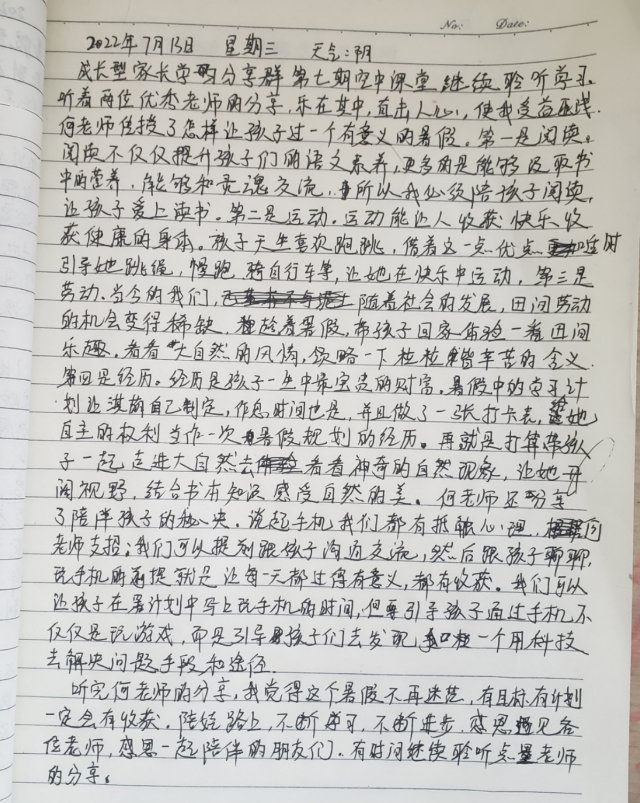 No:　　Date:
2022年7月13日　星期三　天气:阴
成长型家长学的分享群第七期空中课堂继续聆听学习。
听着两位优秀老师的分享，乐在其中，直击人心，使我受益匪浅。
何老师传授了怎样让孩子过一个有意义的暑假。第一是阅读。
阅读不仅仅提升孩子们的语文素养，更多的是能够汲取书
中的营养，能够和灵魂交流，所以我必须陪孩子阅读，
让孩子爱上读书。第二是运动。运动能让人收获快乐收
获健康的身体。孩子天生喜欢跑跳，借着这一点优点适时
引导她跳绳，慢跑 骑自行车等，让她在快乐中运动，第三是
劳动。当今的我们，随着社会的发展，田间劳动
的机会变得稀缺，趁着暑假，带孩子回家体验一番田间
乐趣，看看大自然的风情，领略一下粒粒皆辛苦的含义.
第四是经历。经历是孩子一生中最宝贵的财富。暑假中的学习计
划让淇萌自己制定，作息时间也是，并且做了一张打卡表，给她
自主的权利当作一次暑假规划的经历。再就是打算带孩
子一起走进大自然去看看神奇的自然现象，让她开
阔视野，结合书本知识感受自然的美。何老师还分享
了陪伴孩子的秘诀。说起手机我们都有抵触心理，何
老师支招:我们可以提到跟孩子沟通交流，然后跟孩子聊聊，
玩手机的前提就是让每一天都过得有意义，都有收获。我们可以
让孩子在暑计划中写上玩手机的时间，但要引导孩子通过手机不
仅仅是玩游戏，而是引导孩子们去发现一个用科技
去解决问题手段和途径.
听完何老师的分享，我觉得这个暑假不再迷茫，有目标有计划
一定会有收获。陪娃路上，不断学习，不断进步，感恩遇见各
位老师，感恩一起陪伴的朋友们。有时间继续聆听点老师
的分享。